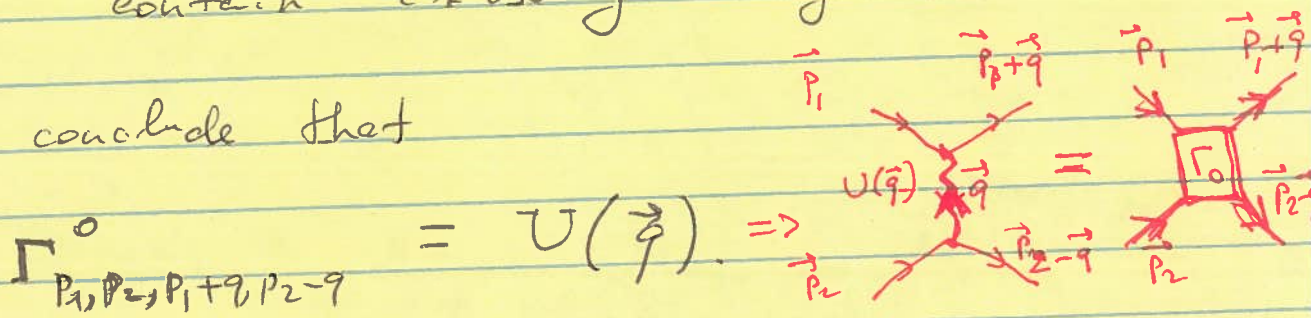 conclude that
Γ⁰_{P₁,P₂,P₁+q,P₂-q} = U(q⃗). =>
p⃗₁ p⃗₁+q⃗ U(q⃗) q⃗ p⃗₂ p⃗₂-q⃗
=
p⃗₁ p⃗₁+q⃗ Γ₀ p⃗₂ p⃗₂-